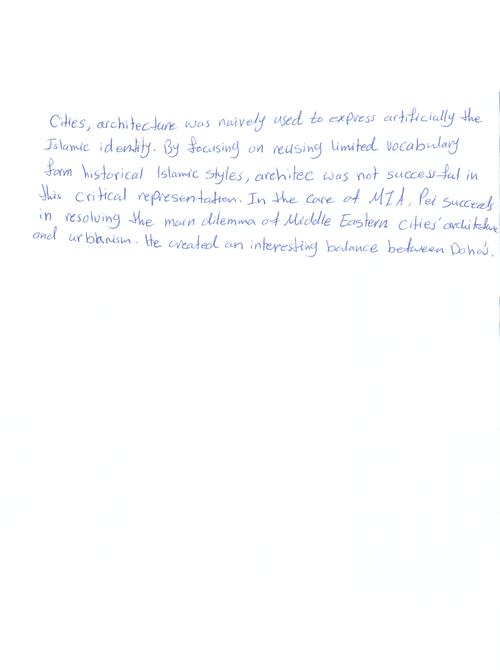 Cities, architecture was naively used to express artificially the
Islamic identity. By focusing on reusing limited vocabulary
form historical Islamic styles, architec was not successful in
this critical representation. In the care of MIA, Pei succeeds
in resolving the main dilemma of Middle Eastern cities' architecture
and urbanism. He created an interesting balance between Doha's.